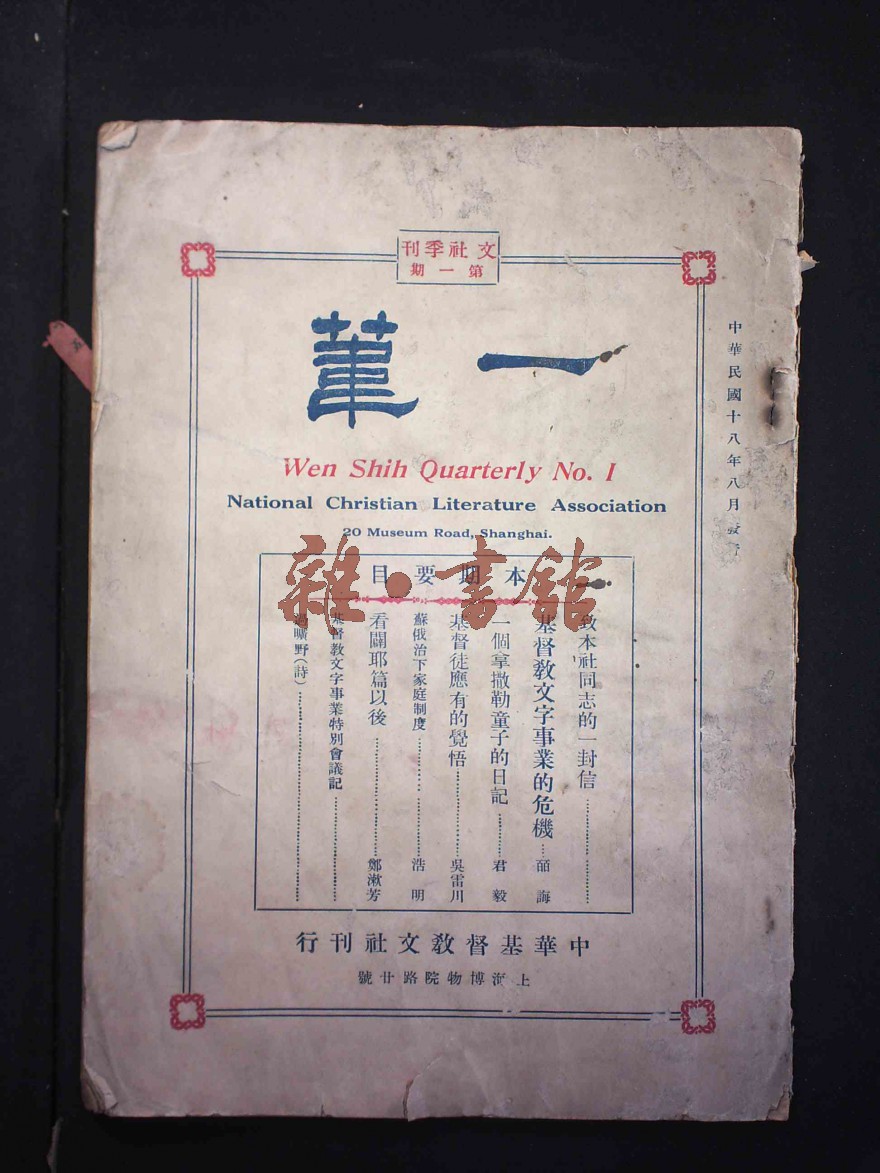 文社季刊
第一期
一葦
中華民國十八年八月發行
Wen Shih Quarterly No. I
National Christian Literature Association
20 Museum Road, Shanghai.
雜·書館
本期要目
致本社同志的一封信……………
基督教文字事業的危機……皕誨
一個拿撒勒童子的日記……君毅
基督徒應有的覺悟……………吳雷川
蘇俄治下家庭制度……………浩明
看闢耶篇以後……………鄭漱芳
基督教文字事業特別會議記……………
過曠野(詩)……………
中華基督教文社刊行
上海博物院路廿號